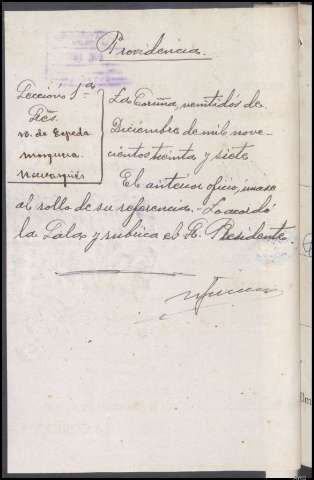 Providencia.
Sección 1ª
Pte.
N. de Cepeda
Mosquera
Navaqués
La Coruña, veintidós de
Diciembre de mil nove-
cientos treinta y siete
El anterior oficio, únase
al rollo de su referencia.- Lo acordó
la Sala y rubrica el Sr. Presidente.